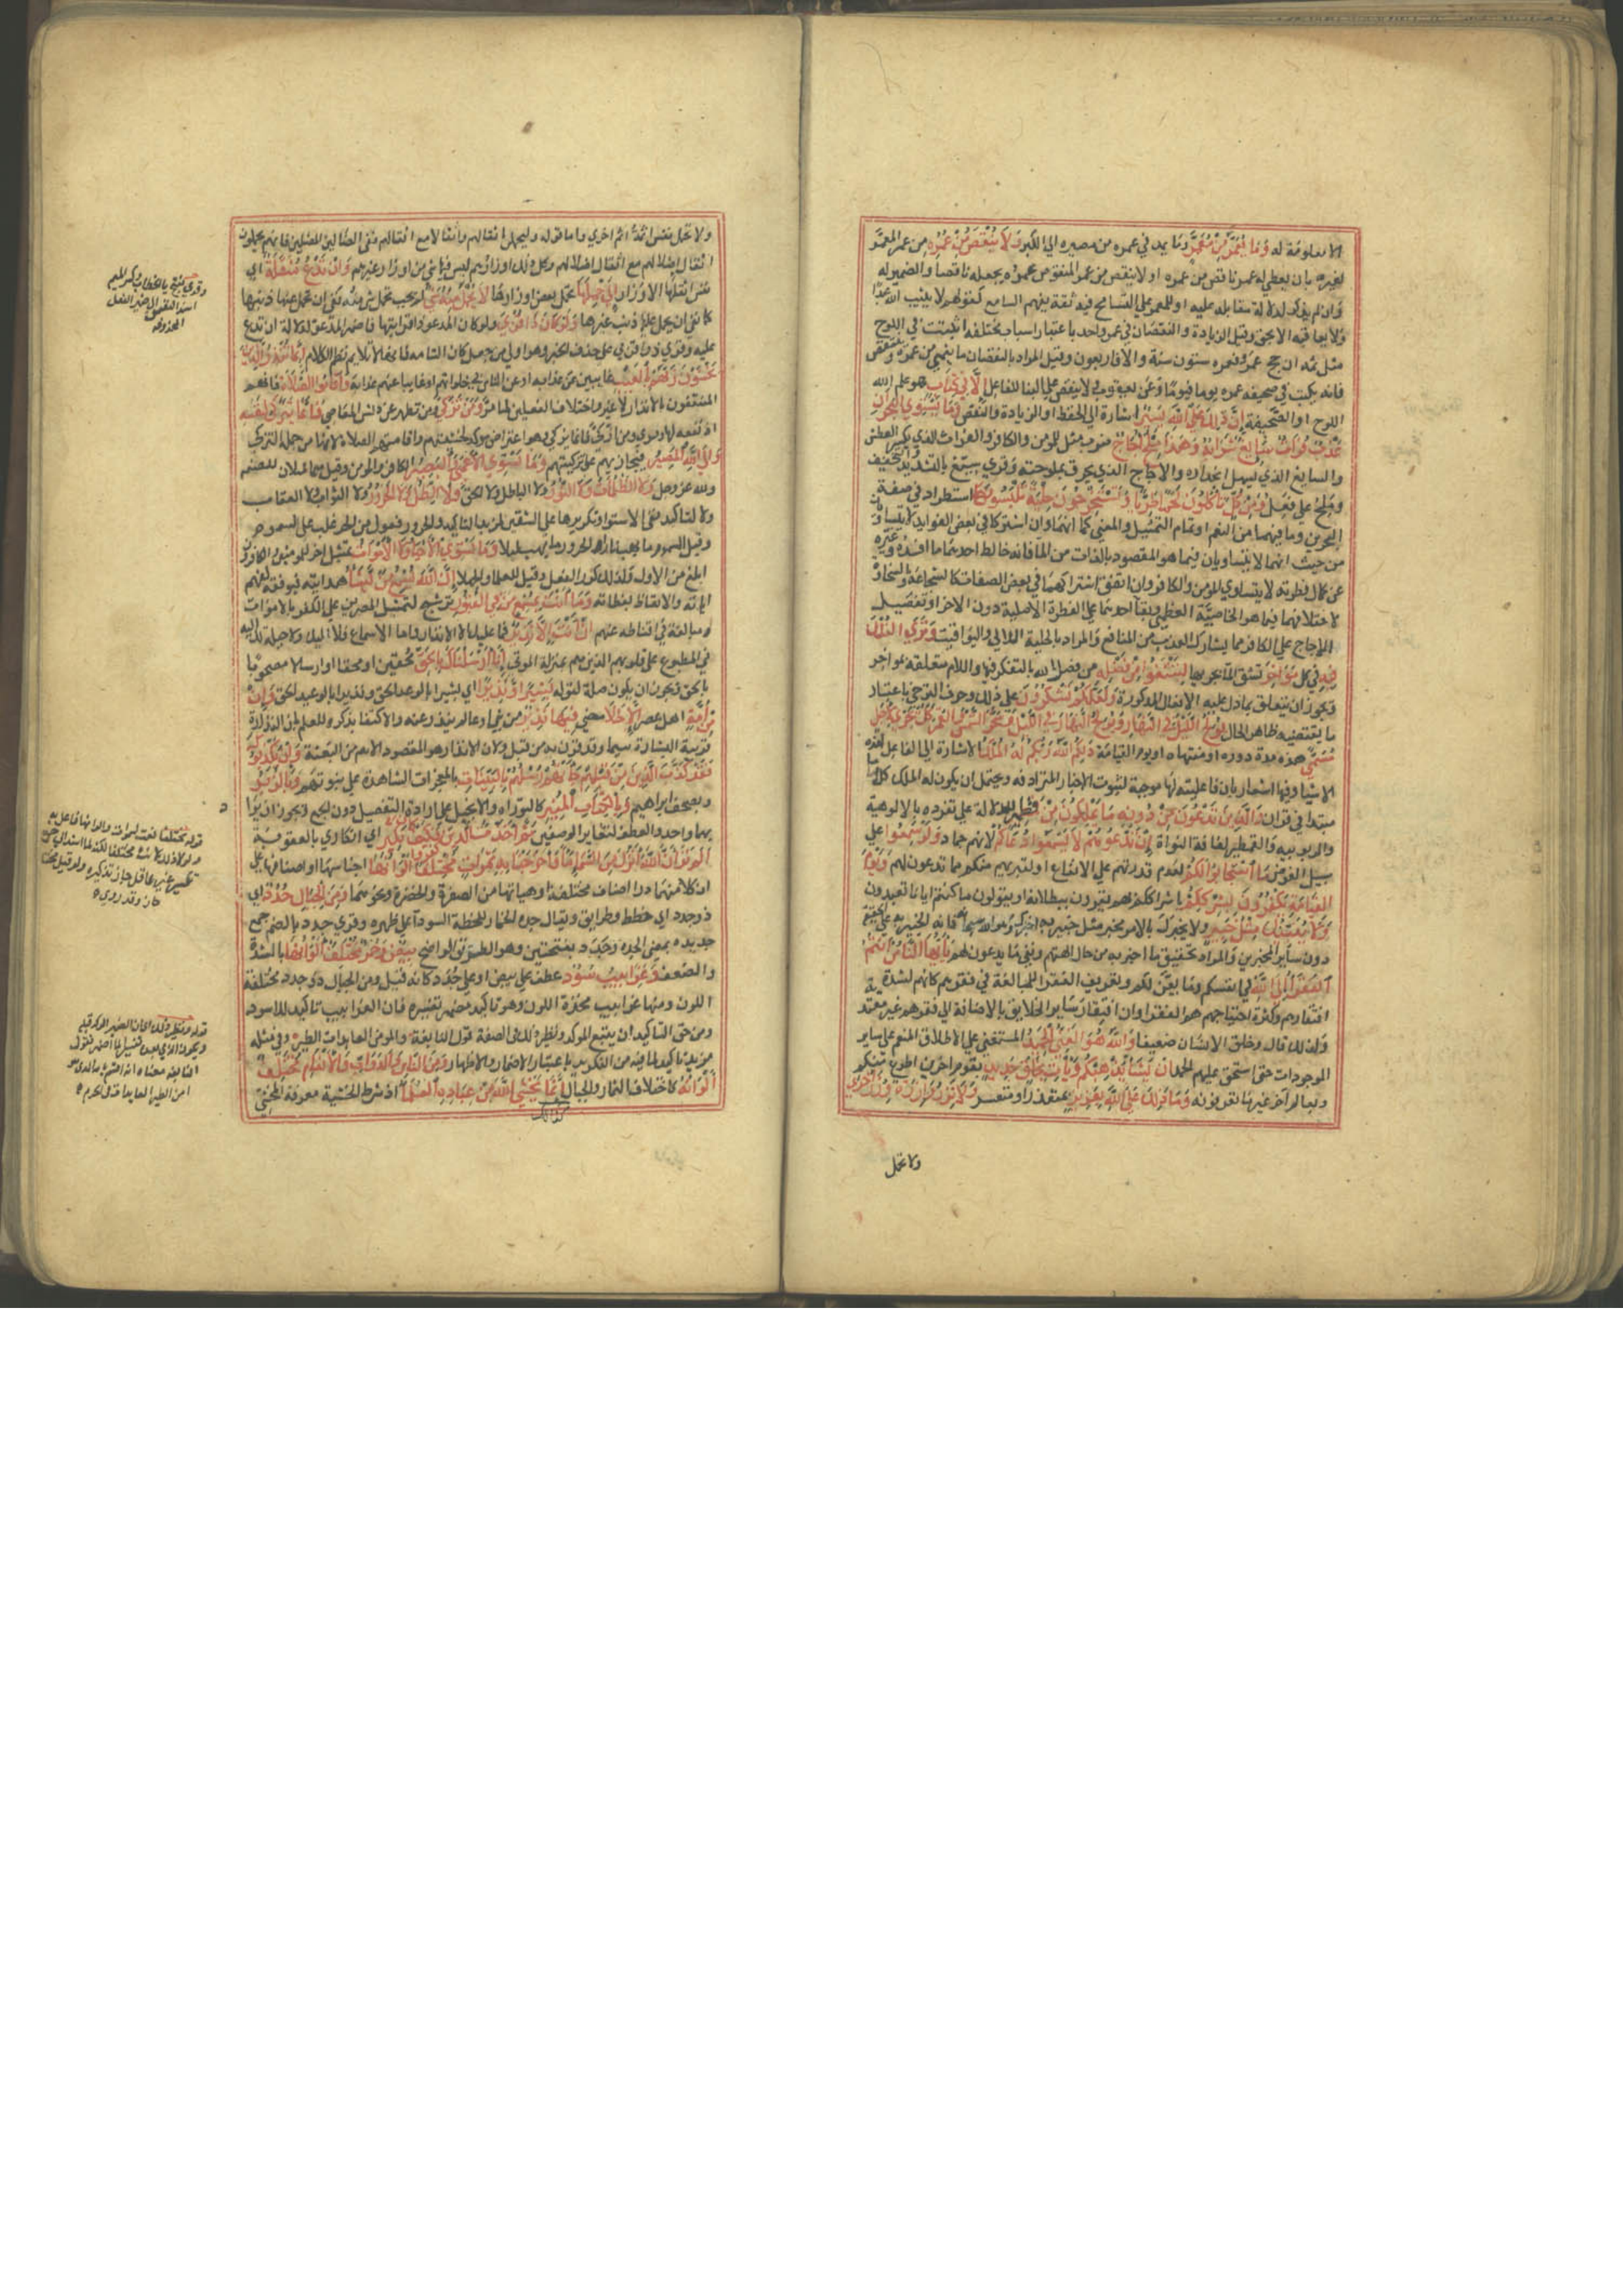 الا معلومة له وَمَا يُعَمَّرُ مِنْ مُعَمَّرٍ وما يمد في عمره من مصيره الي الكبر وَلَا يُنْقَصُ مِنْ عُمُرِهِ من عمر المعمر
لغيره بان يعطي له عمر ناقص من عمره او لا ينقص من عمر المنقوص عمره بجعله ناقصا والضمير له
وان لم يذكر لدلالة مقابله عليه او للمعمر علي التسامح فيه ثقة بفهم السامع كقولهم لا يثيب الله عبدا
ولا يعاقبه الا بحق وقيل الزيادة والنقصان في عمر واحد باعتبار اسباب مختلفة اثبتت في اللوح
مثل فيه ان حج عمرو فعمره ستون سنة والا فاربعون وقيل المراد بالنقصان ما يمر من عمره وينقص
فانه يكتب في صحيفة عمره يوما فيوما وعن يعقوب ولا ينقص علي البنا للفاعل إِلَّا فِي كِتَابٍ هو علم الله
اللوح او الصحيفة إِنَّ ذَلِكَ عَلَى اللَّهِ يَسِيرٌ اشارة الي الحفظ او الزيادة والنقص وَمَا يَسْتَوِي الْبَحْرَانِ
عَذْبٌ فُرَاتٌ سَائِغٌ شَرَابُهُ وَهَذَا مِلْحٌ أُجَاجٌ ضرب مثل للمومن والكافر والفرات الذي يكسر العطش
والسايغ الذي يسهل انحداره والاجاج الذي يحرق بملوحته وقري سيّغ بالتشديد والتخفيف
وملح علي فعل وَمِنْ كُلٍّ تَأْكُلُونَ لَحْمًا طَرِيًّا وَتَسْتَخْرِجُونَ حِلْيَةً تَلْبَسُونَهَا استطراد في صفة
البحرين وما فيهما من النعم او تمام التمثيل والمعني كما انهما وان اشتركا في بعض الفوايد لا يتساويان
من حيث انهما لا يتساويان فيما هو المقصود بالذات من الما فانه خالط احدهما ما افسده وغيره
عن كمال فطرته لا يتساوي المومن والكافر وان اتفق اشتراكهما في بعض الصفات كالشجاعة والسخاوة
لاختلافهما فيما هو الخاصية العظمي وبقا احدهما علي الفطرة الاصلية دون الاخر او تفضيل
الاجاج علي الكافر بما يشارك العذب من المنافع والمراد بالحلية اللالي واليواقيت وَتَرَى الْفُلْكَ
فِيهِ في كل مَوَاخِرَ تشق الما بجريها لِتَبْتَغُوا مِنْ فَضْلِهِ من فضل الله بالتفكر فيها واللام متعلقة بمواخر
ويجوز ان يتعلق بما دل عليه الافعال المذكورة وَلَعَلَّكُمْ تَشْكُرُونَ علي ذلك وحرف الترجي باعتبار
ما يقتضيه ظاهر الحال يُولِجُ اللَّيْلَ فِي النَّهَارِ وَيُولِجُ النَّهَارَ فِي اللَّيْلِ وَسَخَّرَ الشَّمْسَ وَالْقَمَرَ كُلٌّ يَجْرِي لِأَجَلٍ
مُسَمًّى هذه مدة دوره او منتهاه او يوم القيامة ذَلِكُمُ اللَّهُ رَبُّكُمْ لَهُ الْمُلْكُ الاشارة الي الفاعل لهذه
الاشيا وفيها اشعار بان فاعليته لها موجبة لثبوت الاخبار المترادفة ويحتمل ان يكون له الملك كلاما
مبتدا في قران وَالَّذِينَ تَدْعُونَ مِنْ دُونِهِ مَا يَمْلِكُونَ مِنْ قِطْمِيرٍ للدلالة علي تفرده بالالوهية
والربوبية والقطمير لفافة النواة إِنْ تَدْعُوهُمْ لَا يَسْمَعُوا دُعَاءَكُمْ لانهم جماد وَلَوْ سَمِعُوا علي
سبيل الفرض مَا اسْتَجَابُوا لَكُمْ لعدم قدرتهم علي الانفاع او لتبريهم منكم مما تدعون لهم وَيَوْمَ
الْقِيَامَةِ يَكْفُرُونَ بِشِرْكِكُمْ باشراككم لهم يقرون ببطلانه او يقولون ما كنتم ايانا تعبدون
وَلَا يُنَبِّئُكَ مِثْلُ خَبِيرٍ ولا يخبرك بالامر مخبر مثل خبير به اخبرك وهو الله سبحانه فانه الخبير به علي الحقيقة
دون ساير المخبرين والمراد تحقيق ما اخبر به من حال الهتهم ونفي ما يدعون لهم يَا أَيُّهَا النَّاسُ أَنْتُمُ
الْفُقَرَاءُ إِلَى اللَّهِ في انفسكم وما يعن لكم وتعريف الفقرا للمبالغة في فقرهم كانهم لشدة
افتقارهم وكثرة احتياجهم هم الفقرا وان افتقار ساير الخلايق بالاضافة الي فقرهم غير معتد به
ولذلك قال وخلق الانسان ضعيفا وَاللَّهُ هُوَ الْغَنِيُّ الْحَمِيدُ المستغني علي الاطلاق المنعم علي ساير
الموجودات حتي استحق عليهم الحمد إِنْ يَشَأْ يُذْهِبْكُمْ وَيَأْتِ بِخَلْقٍ جَدِيدٍ بقوم اخرين اطوع منكم
او بعالم اخر غير ما تعرفونه وَمَا ذَلِكَ عَلَى اللَّهِ بِعَزِيزٍ بمتعذر او متعسر وَلَا تَزِرُ وَازِرَةٌ وِزْرَ أُخْرَى
ولا تحمل
ولا تحمل نفس اثمة اثم اخري واما قوله وليحملن اثقالهم واثقالا مع اثقالهم ففي الضالين المضلين فانهم يحملون
اثقال اضلالهم مع اثقال ضلالهم وكل ذلك اوزارهم ليس فيها شي من اوزار غيرهم وَإِنْ تَدْعُ مُثْقَلَةٌ اي
نفس اثقلها الاوزار إِلَى حِمْلِهَا تحمل بعض اوزارها لَا يُحْمَلْ مِنْهُ شَيْءٌ لم تجب لحمل شي منه نفي ان تحمل عنها ذنبها
كما نفي ان يحمل عليها ذنب غيرها وَلَوْ كَانَ ذَا قُرْبَى ولو كان المدعو ذا قرابتها فاضمر المدعو لدلالة ان تدع
عليه وقري ذو قربي علي حذف الخبر وهو اولي من جعل كان التامة فانها لا تلايم نظم الكلام إِنَّمَا تُنْذِرُ الَّذِينَ
يَخْشَوْنَ رَبَّهُمْ بِالْغَيْبِ غايبين عن عذابه او عن الناس في خلواتهم او غايبا عنهم عذابه وَأَقَامُوا الصَّلَاةَ فانهم
المنتفعون بالانذار لا غير واختلاف الفعلين لما مر وَمَنْ تَزَكَّى ومن تطهر عن دنس المعاصي فَإِنَّمَا يَتَزَكَّى لِنَفْسِهِ
اذ نفعه لها وقري ومن ازكي فانما يزكي وهو اعتراض موكد لخشيتهم واقامتهم الصلاة لانهما من جملة التزكي
وَإِلَى اللَّهِ الْمَصِيرُ فيجازيهم علي تزكيتهم وَمَا يَسْتَوِي الْأَعْمَى وَالْبَصِيرُ الكافر والمومن وقيل هما مثلان للصنم
ولله عز وجل وَلَا الظُّلُمَاتُ وَلَا النُّورُ ولا الباطل ولا الحق وَلَا الظِّلُّ وَلَا الْحَرُورُ ولا الثواب ولا العقاب
ولا لتاكيد نفي الاستوا وتكريرها علي الشقين لمزيد التاكيد والحرور فعول من الحر غلب علي السموم
وقيل السموم ما يهب نهارا والحرور ما يهب ليلا وَمَا يَسْتَوِي الْأَحْيَاءُ وَلَا الْأَمْوَاتُ تمثيل اخر للمومنين والكافرين
ابلغ من الاول ولذلك كرر الفعل وقيل للعلما والجهلا إِنَّ اللَّهَ يُسْمِعُ مَنْ يَشَاءُ هدايته فيوفقه لفهم
اياته والاتعاظ بعظاته وَمَا أَنْتَ بِمُسْمِعٍ مَنْ فِي الْقُبُورِ ترشيح لتمثيل المصرين علي الكفر بالاموات
ومبالغة في اقناطه عنهم إِنْ أَنْتَ إِلَّا نَذِيرٌ فما عليك الا الانذار واما الاسماع فلا اليك ولا حيلة لك اليه
في المطبوع علي قلوبهم الذين هم بمنزلة الموتي إِنَّا أَرْسَلْنَاكَ بِالْحَقِّ محقين او محقا او ارسالا مصحوبا
بالحق ويجوز ان يكون صلة لقوله بَشِيرًا وَنَذِيرًا اي بشيرا بالوعد الحق ونذيرا بالوعيد الحق وَإِنْ
مِنْ أُمَّةٍ اهل عصر إِلَّا خَلَا مضي فِيهَا نَذِيرٌ من نبي او عالم ينذر عنه والاكتفا بذكره للعلم بان النذارة
قرينة البشارة سيما وقد قرن به من قبل ولان الانذار هو المقصود الاهم من البعثة وَإِنْ يُكَذِّبُوكَ
فَقَدْ كَذَّبَ الَّذِينَ مِنْ قَبْلِهِمْ جَاءَتْهُمْ رُسُلُهُمْ بِالْبَيِّنَاتِ بالمعجزات الشاهدة علي نبوتهم وَبِالزُّبُرِ
وبصحف ابراهيم وَبِالْكِتَابِ الْمُنِيرِ كالتوراة والانجيل علي ارادة التفصيل دون الجمع ويجوز ان يراد
بهما واحد والعطف لتغاير الوصفين ثُمَّ أَخَذْتُ الَّذِينَ كَفَرُوا فَكَيْفَ كَانَ نَكِيرِ اي انكاري بالعقوبة
أَلَمْ تَرَ أَنَّ اللَّهَ أَنْزَلَ مِنَ السَّمَاءِ مَاءً فَأَخْرَجْنَا بِهِ ثَمَرَاتٍ مُخْتَلِفًا أَلْوَانُهَا اجناسها او اصنافها علي
ان كلا منهما ذوا اصناف مختلفة او هياتها من الصفرة والخضرة ونحوهما وَمِنَ الْجِبَالِ جُدَدٌ اي
ذو جدد اي خطط وطرايق ويقال جدة الحمار للخطة السودا علي ظهره وقري جدد بالضم جمع
جديدة بمعني الجدة وجدد بفتحتين وهو الطريق الواضح بِيضٌ وَحُمْرٌ مُخْتَلِفٌ أَلْوَانُهَا بالشدة
والضعف وَغَرَابِيبُ سُودٌ عطف علي بيض او علي جدد كانه قيل ومن الجبال ذو جدد مختلفة
اللون ومنها غرابيب متحدة اللون وهو تاكيد مضمر تفسيره فان الغرابيب تاكيد للاسود
ومن حق التاكيد ان يتبع الموكد ونظير ذلك في الصفة قول النابغة والمومن العايذات الطير وفي مثله
مزيد تاكيد لما فيه من التكرير باعتبار الاضمار والاظهار وَمِنَ النَّاسِ وَالدَّوَابِّ وَالْأَنْعَامِ مُخْتَلِفٌ
أَلْوَانُهُ كاختلاف الثمار والجبال إِنَّمَا يَخْشَى اللَّهَ مِنْ عِبَادِهِ الْعُلَمَاءُ اذ شرط الخشية معرفة المخشي
كذلك